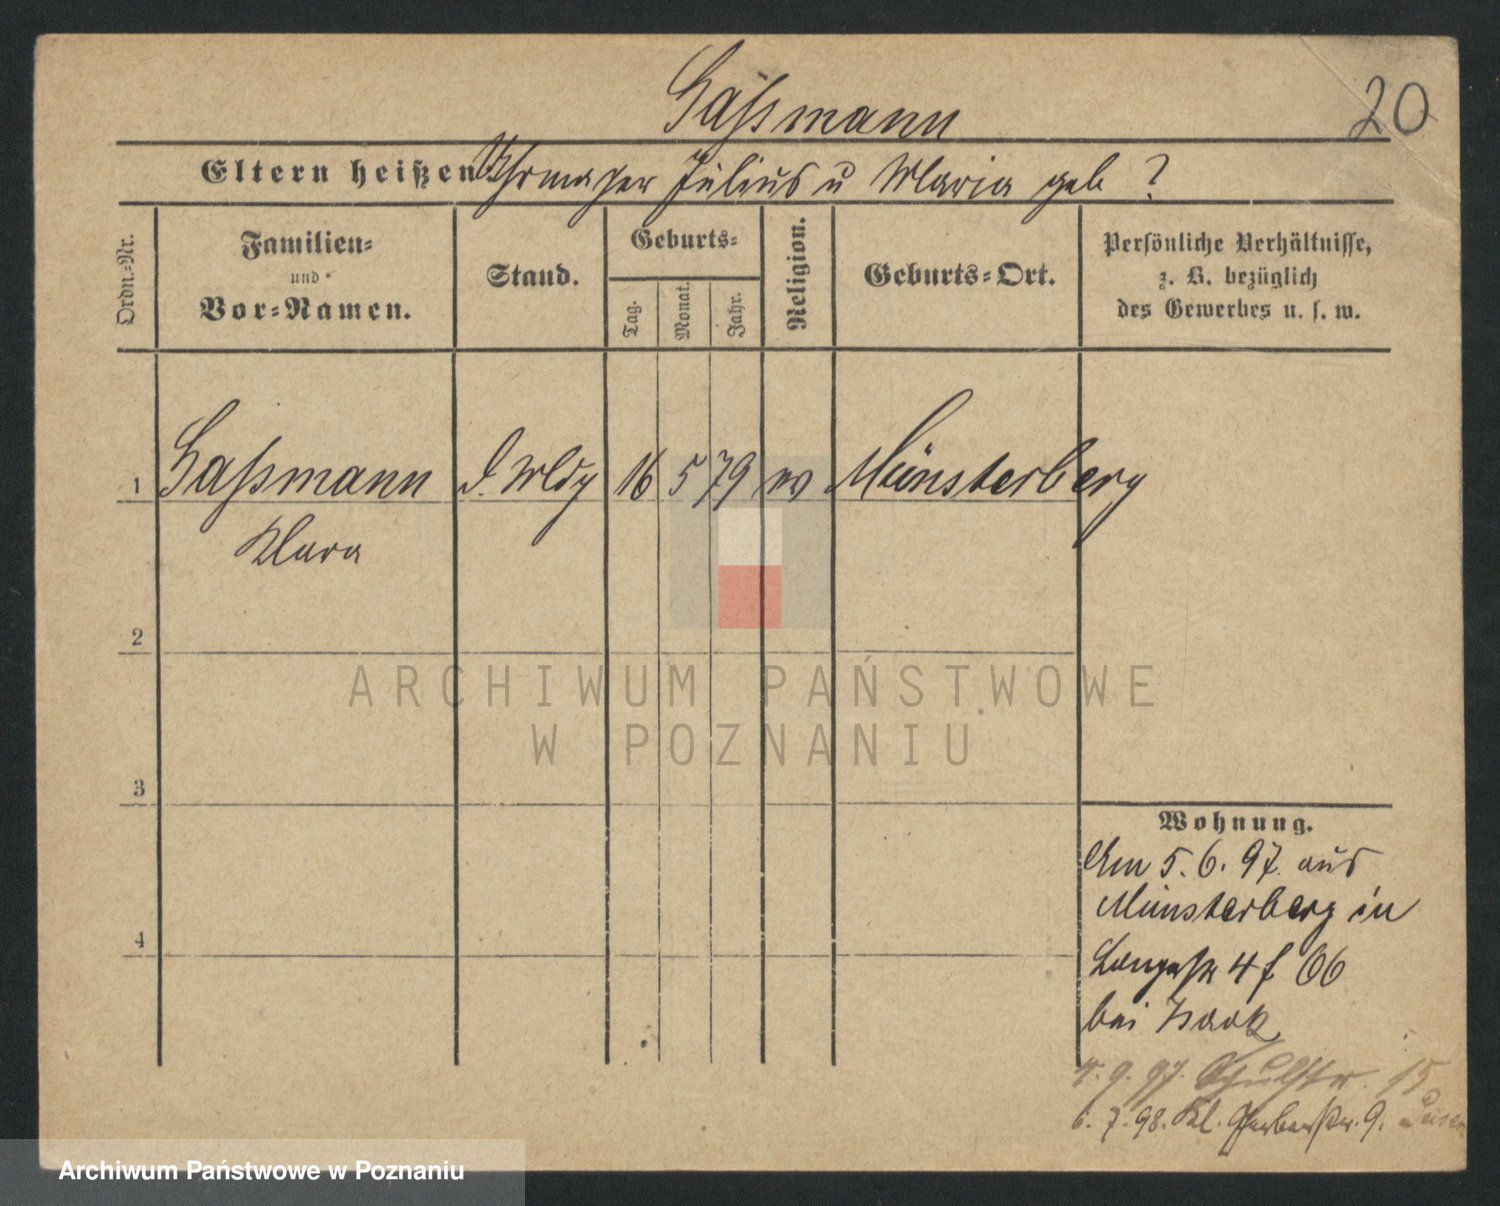 Gaßmann
20
Eltern heißen Uhrmacher Julius u Maria geb ?
Ordn.-Nr.
Familien-
und
Vor-Namen.
Stand.
Geburts-
Tag.
Monat.
Jahr.
Religion.
Geburts-Ort.
Persönliche Verhältnisse,
z. B. bezüglich
des Gewerbes u. s. w.
1 Gaßmann 16 5 79 Münsterberg
Klara
2
3
4
Wohnung.
Am 5.6.97. aus
Münsterberg in
Langestr 4
bei
4.9.97. Schulstr. 15
6.7.98. Kl. Gerberstr. 9.
ARCHIWUM PAŃSTWOWE
W POZNANIU
Archiwum Państwowe w Poznaniu